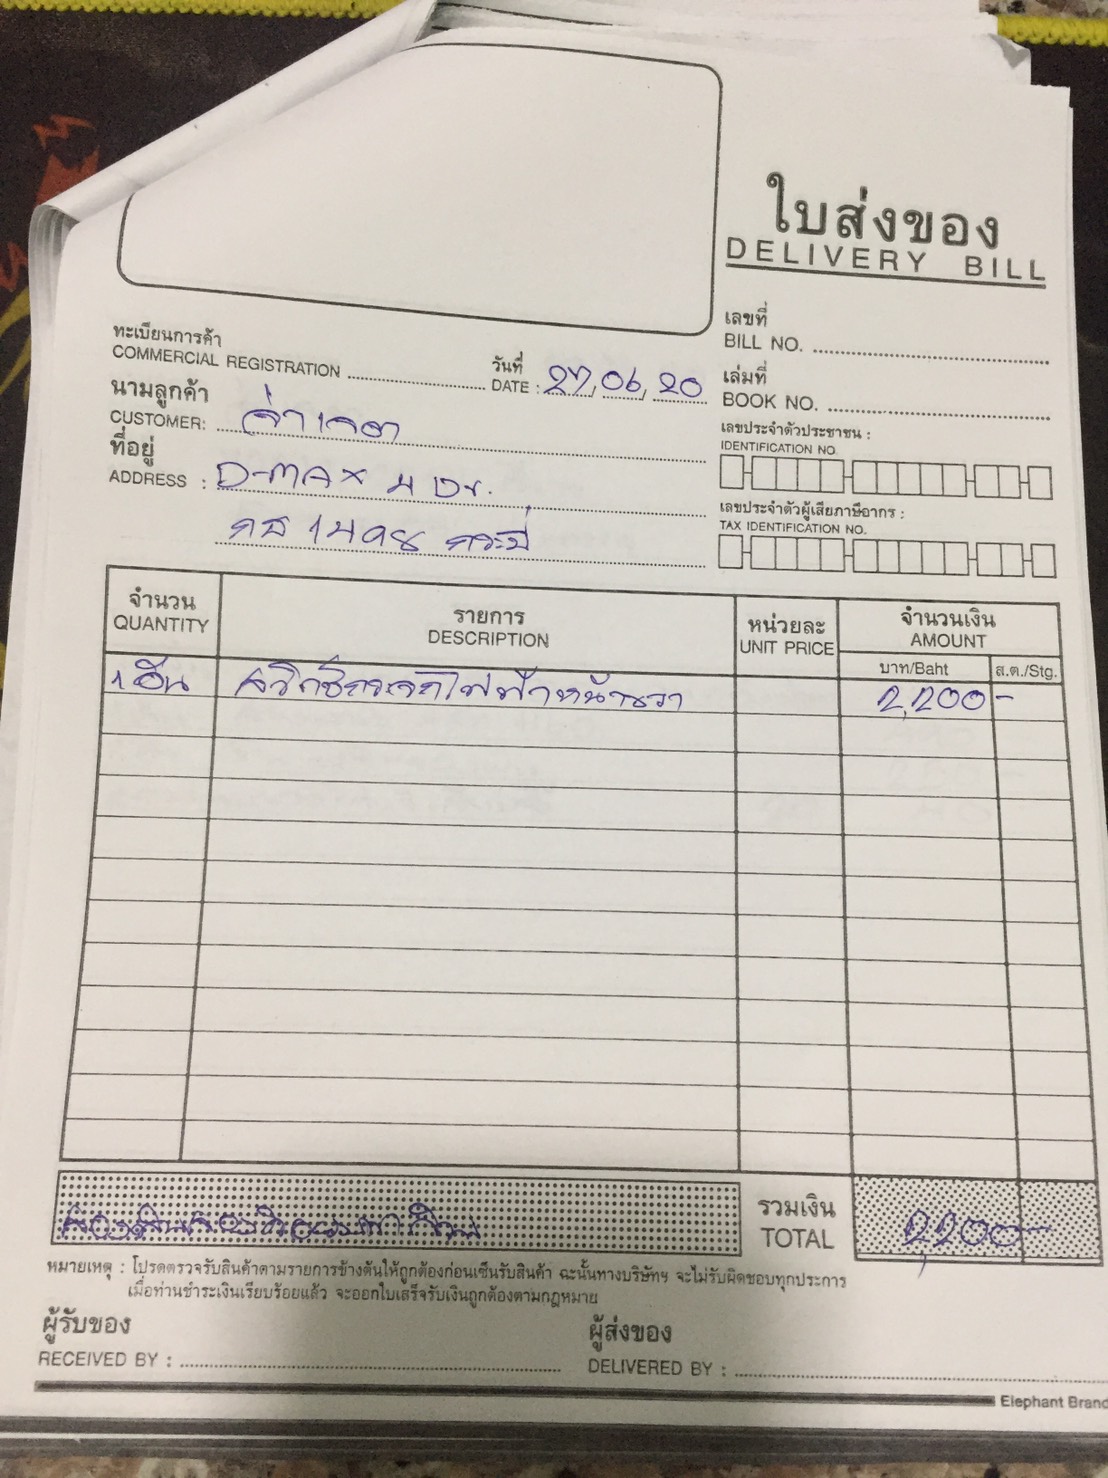 ใบส่งของ
DELIVERY BILL
เลขที่
BILL NO.
ทะเบียนการค้า
COMMERCIAL REGISTRATION
วันที่
DATE : 27/06/20
เล่มที่
BOOK NO.
นามลูกค้า
CUSTOMER: จ่าเจตา
ที่อยู่
ADDRESS : D-MAX 4 Dr.
กธ 1498 กระบี่
เลขประจำตัวประชาชน :
IDENTIFICATION NO.
เลขประจำตัวผู้เสียภาษีอากร :
TAX IDENTIFICATION NO.
จำนวน รายการ หน่วยละ จำนวนเงิน
QUANTITY DESCRIPTION UNIT PRICE AMOUNT
บาท/Baht ส.ต./Stg.
1 อัน สวิทช์กระจกไฟฟ้าหน้าขวา 2,200 -
สองพันสองร้อยบาทถ้วน
รวมเงิน
TOTAL 2,200 -
หมายเหตุ : โปรดตรวจรับสินค้าตามรายการข้างต้นให้ถูกต้องก่อนเซ็นรับสินค้า ฉะนั้นทางบริษัทฯ จะไม่รับผิดชอบทุกประการ
เมื่อท่านชำระเงินเรียบร้อยแล้ว จะออกใบเสร็จรับเงินถูกต้องตามกฎหมาย
ผู้รับของ
RECEIVED BY :
ผู้ส่งของ
DELIVERED BY :
Elephant Brand